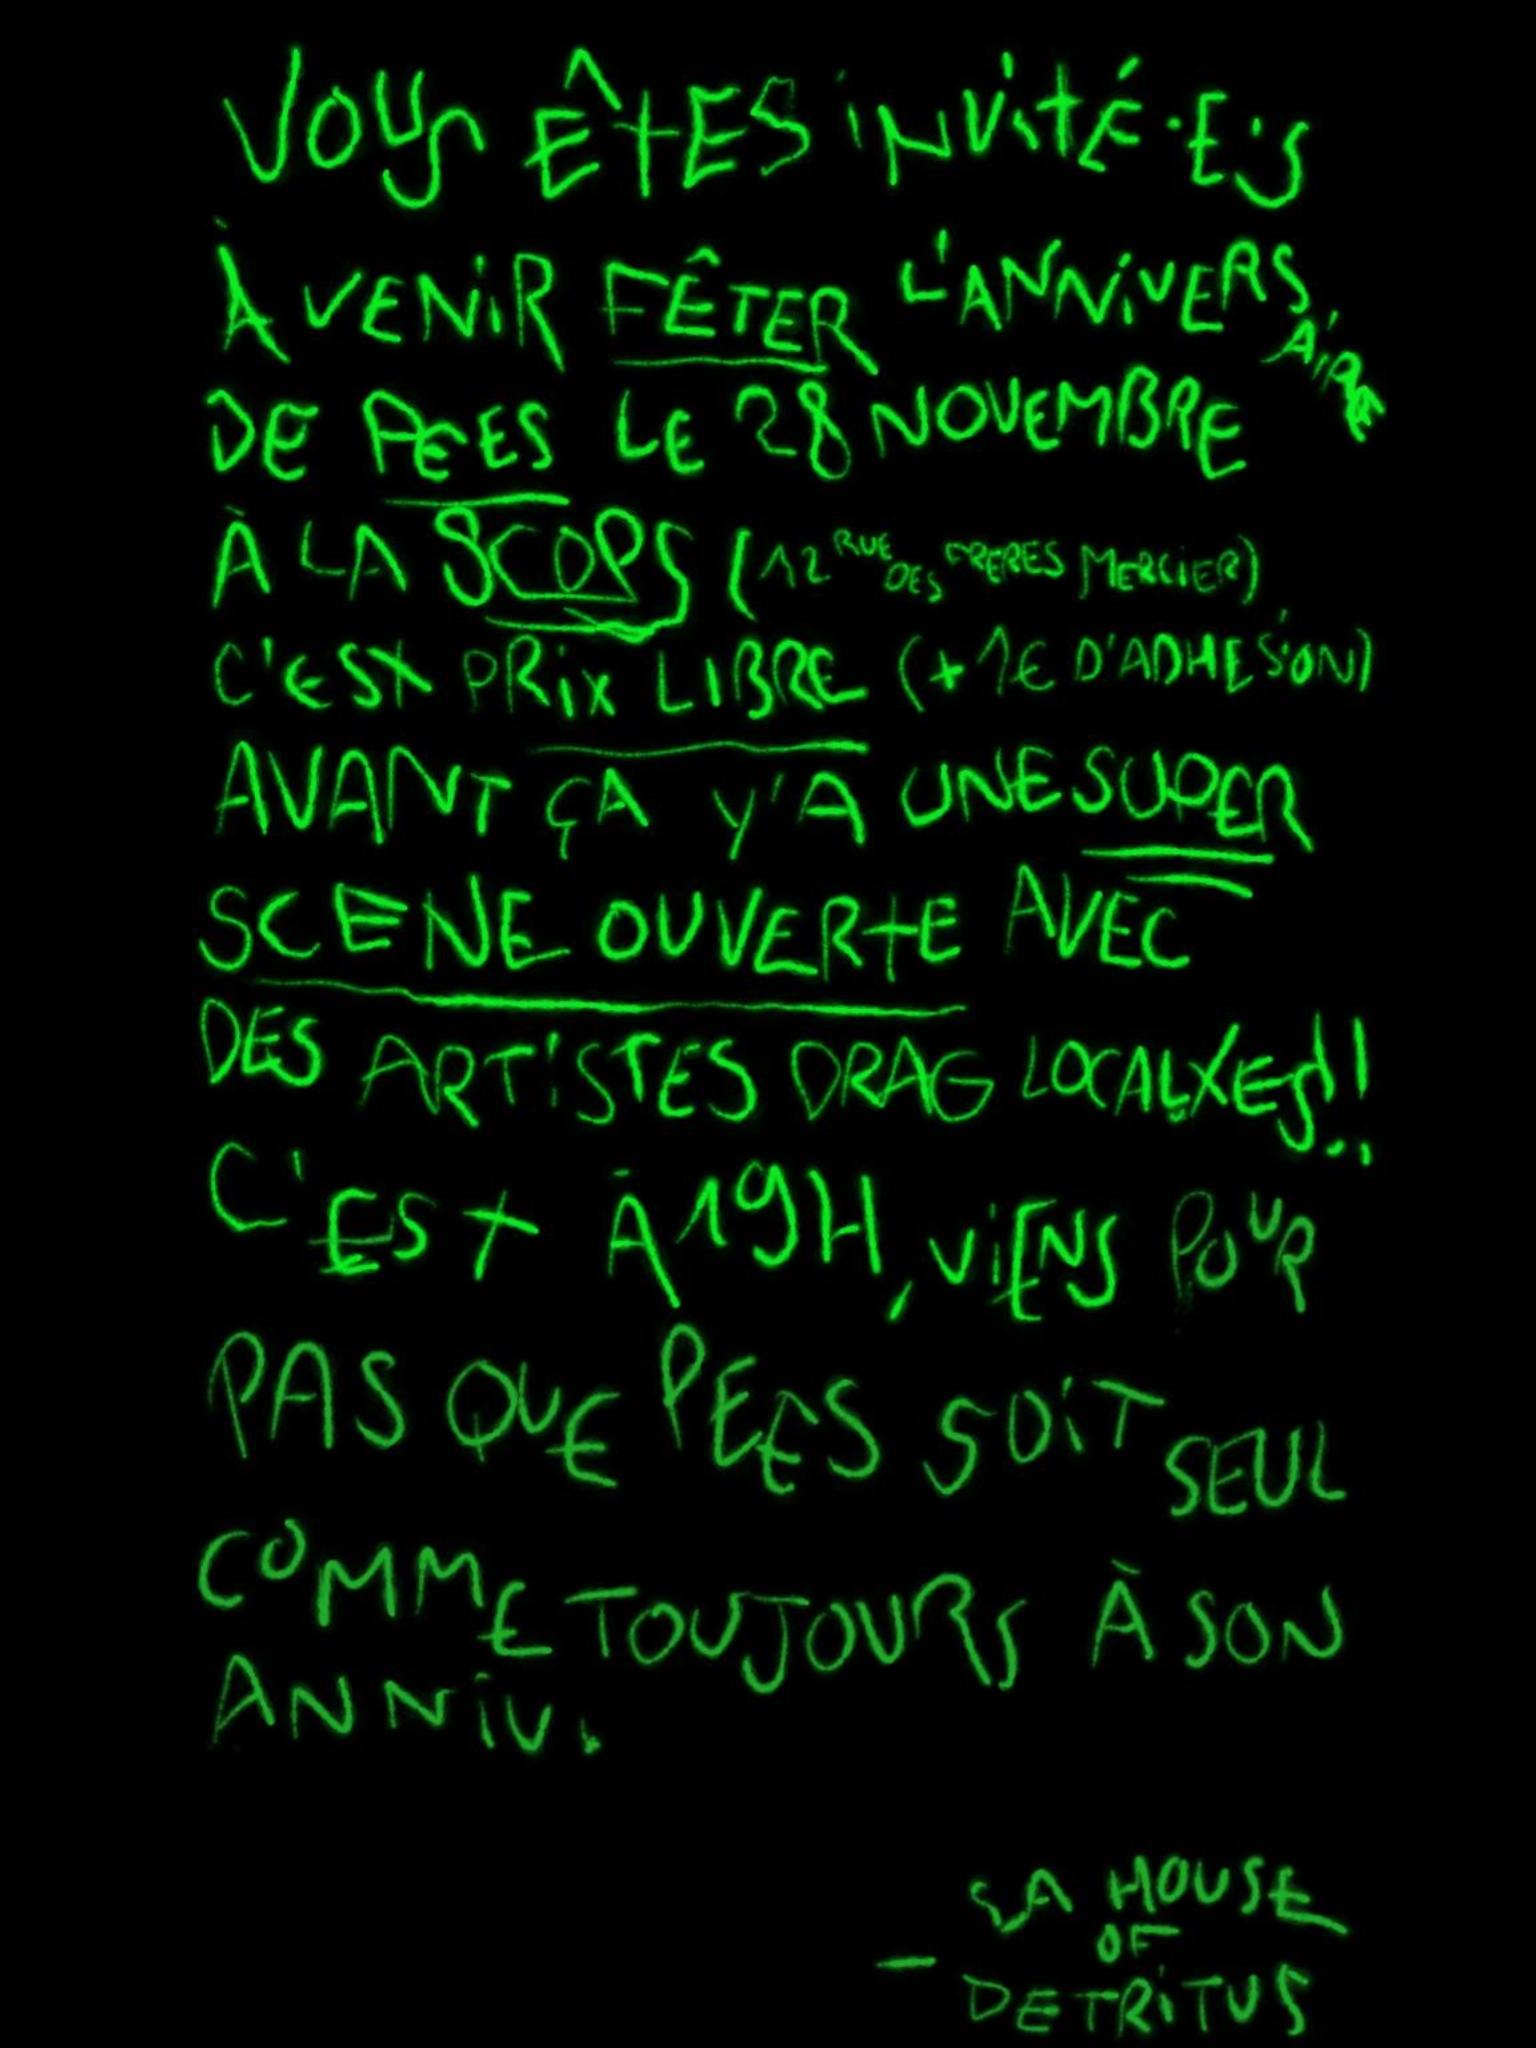 VOUS ÊTES INVITÉ·E·S
À VENIR FÊTER L'ANNIVERSAIRE
DE PEES LE 28 NOVEMBRE
À LA SCOPS (12 RUE DES FRERES MERCIER)
C'EST PRIX LIBRE (+1€ D'ADHESION)
AVANT ÇA Y'A UNE SUPER
SCENE OUVERTE AVEC
DES ARTISTES DRAG LOCALXES!!
C'EST À 19H, VIENS POUR
PAS QUE PEES SOIT SEUL
COMME TOUJOURS À SON
ANNIV.
- LA HOUSE
OF
DETRITUS